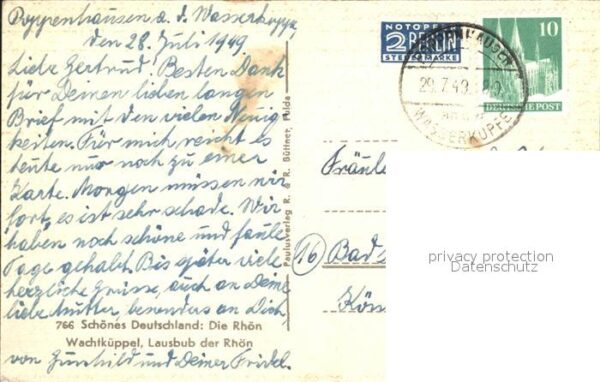 Poppenhausen a. d. Wasserkuppe,
den 28. Juli 1949.
Liebe Gertrud! Besten Dank
für Deinen lieben langen
Brief mit den vielen Neuig
keiten. Für mich reicht es
heute nur noch zu einer
Karte. Morgen müssen wir
fort, es ist sehr schade. Wir
haben noch schöne und faule
Tage gehabt. Bis später viele
herzliche Grüsse, auch an Deine
liebe Mutter, besonders an Dich
766 Schönes Deutschland: Die Rhön
Wachtküppel, Lausbub der Rhön
von Gunhild und Deiner Fridel.
Paulusverlag R. & R. Büttner, Fulda
NOTOPFER
2 BERLIN
STEUERMARKE
POPPENHAUSEN
29.7.49
WASSERKUPPE
10
DEUTSCHE POST
Fräule
16 Bad
privacy protection
Datenschutz